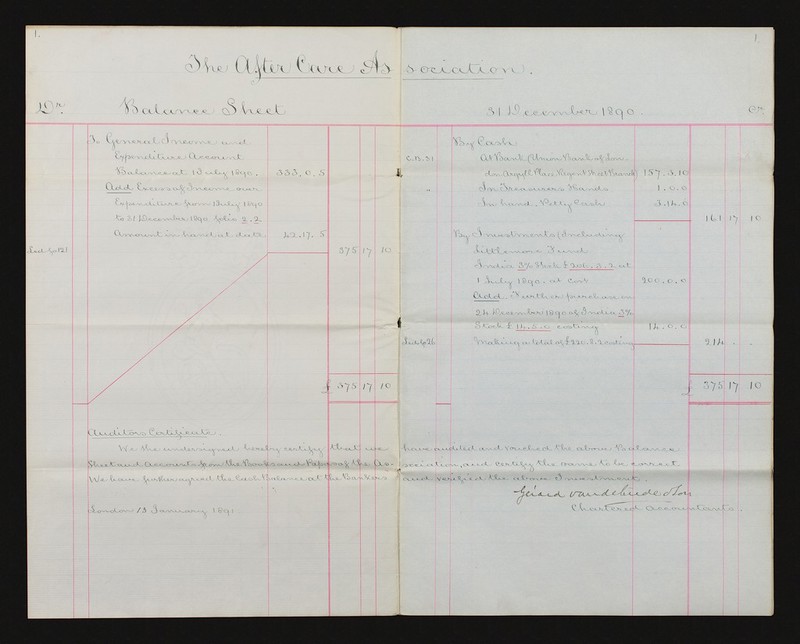 1.
1.
The After Care Association.
Dr.
Balance Sheet
31 December 1890
Cr.
To General Income and
Expenditure Account
Balance at 1 July 1890.
333.0.5
Add Excess of Income over
Expenditure from 1 July 1890
to 31 December 1890 folio 2.2.
Amount in hand at date
42.17.5
375 17 10
£ 375 17 10
By Cash
C.B. 31
At Bank (Union Bank of Lon-
don Argyll Place, Regent Street Branch)
157.3.10
"
In Treasurers Hands
1.0.0
In hand. Petty Cash
3.14.0
161 17 10
By Investments (Including
Fund
India 3% Stock £206.3.2 at
1 July 1890. at cost
200.0.0
Add Further purchase on
24 December 1890 of India 3%
Stock £14.5.0 costing
14.0.0
Making a total of £220.8.2 costing
214 . .
£ 375 17 10
Auditors Certificate.
We the undersigned hereby certify that we have audited and vouched the above Balance
Sheet and Accounts from the Books and Papers of the Association, and certify the same to be correct.
We have further agreed the Cash Balance at the Bankers and verified the above Investment.
Gérard van de Linde & Son
Chartered Accountants.
London 13 January 1891.